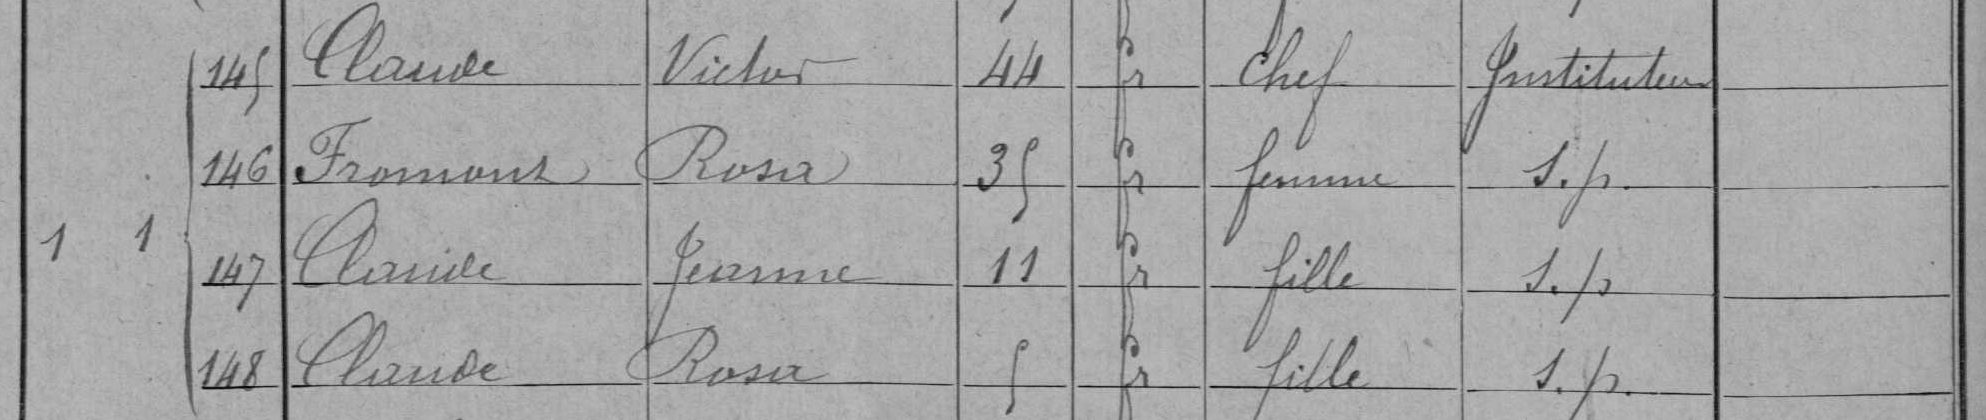 145 Claude Victor 44 fr chef Instituteur
146 Fromont Rosa 35 fr femme s.p.
1 1
147 Claude Jeanne 11 fr fille s.p
148 Claude Rosa 5 fr fille s.p.